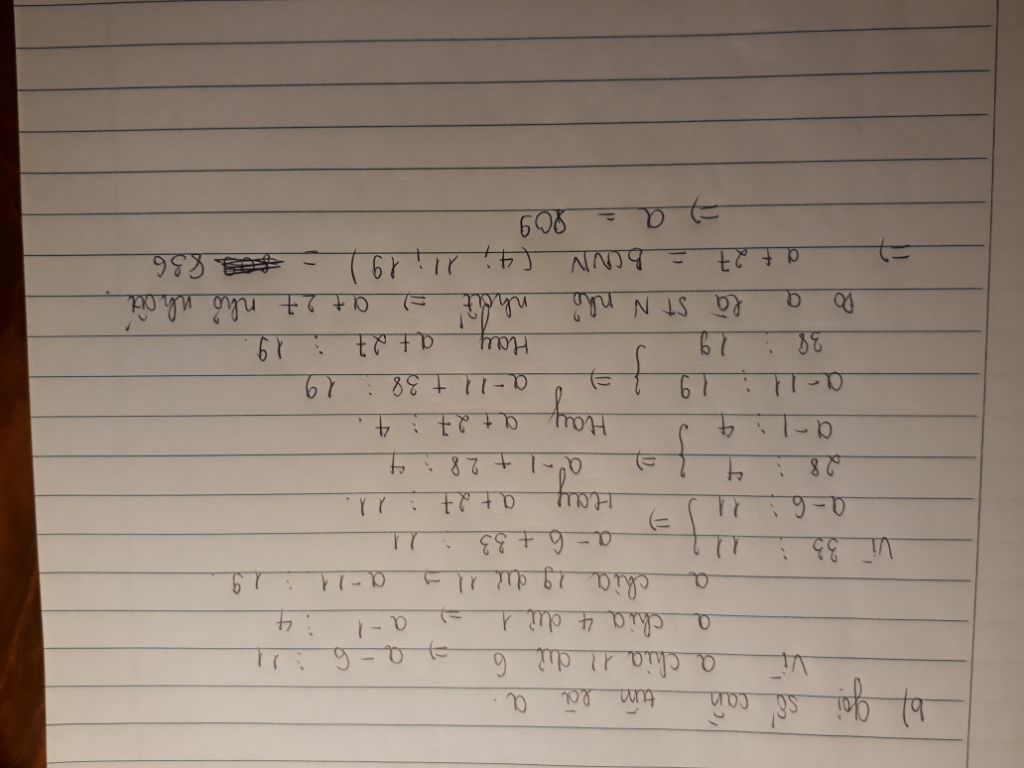 b) gọi số cần tìm là a.
Vì a chia 11 dư 6 => a-6 ⋮ 11
a chia 4 dư 1 => a-1 ⋮ 4
a chia 19 dư 11 => a-11 ⋮ 19.
Vì 33 ⋮ 11 } => a-6+33 ⋮ 11
a-6 ⋮ 11 Hay a+27 ⋮ 11.
28 ⋮ 4 } => a-1+28 ⋮ 4
a-1 ⋮ 4 Hay a+27 ⋮ 4.
a-11 ⋮ 19 } => a-11+38 ⋮ 19
38 ⋮ 19 Hay a+27 ⋮ 19.
Do a là STN nhỏ nhất => a+27 nhỏ nhất.
=> a+27 = BCNN (4; 11; 19) = 836
=> a = 809